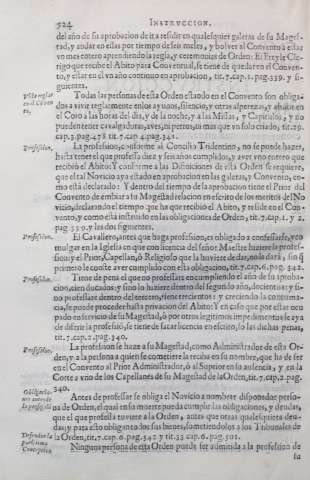 524 INSTRUCCION.
del año de su aprobacion de ira residir en qualesquier galeras de su Mages-
tad, y andar en ellas por tiempo de seis meses, y bolver al Convento à estar
vn mes entero aprendiendo la regla, y ceremonias de Orden: El Freyle Cle-
rigo que recibe el Abito para Conventual, se tiene de quedar en el Conven-
to, y estar en el vn año continuo en aprobacion, tit.7.cap.2.pag.339. y si-
guientes.
Todas las personas de esta Orden estando en el Convento son obliga-
dos à vivir reglarmente en los ayunos, silencio, y otras asperezas, y assistir en
el Coro à las horas del dia, y de la noche, y à las Missas, y Capitulos, y no
pueden tener cavalgaduras, aves, ni perros, ni mas que vn solo criado, tit.29.
cap.3.pag.478.tit.7.cap.4.pag.341.
Profession.
La profession, conforme al Concilio Tridentino, no se puede hazer,
hasta tener el que professa diez y seis años cumplidos, y aver vno entero que
recibiò el Abito: Y conforme a las Difiniciones de esta Orden se requiere,
que el tal Novicio aya estado en aprobacion en las galeras, y Convento, co-
mo està declarado: Y dentro del tiempo de la aprobacion tiene el Prior del
Convento de embiar a su Magestad relacion en escrito de los meritos del No
vicio, declarando el tiempo que ha que recibiò el Abito, y reside en el Con-
vento, y como està instruido en las obligaciones de Orden, tit.7.cap.1. y 2.
pag.339. y las dos siguientes.
Profession.
El Cavallero, antes que haga profession, es obligado à confessarse, y co
mulgar en la Iglesia en que con licencia del señor Maestre huviere la profes-
sion: y el Prior, Capellan, ò Religioso que la huviere de dar, no la darà, sin q
primero le conste aver cumplido con esta obligacion, tit.7.cap.6.pag.342.
Profession.
Tiene de pena el que no professare en cumpliendo el año de su aproba-
cion, cien ducados: y si no lo hiziere dentro del segundo año, docientos: y si
no professare dentro del tercero, trecientos: y creciendo la contuma-
cia, se puede proceder hasta privacion del Abito: Y en caso que por estar ocu
pado en servicio de su Magestad, ò por otros legitimos impedimentos se aya
de diferir la professiõ, se tiene de sacar licencia en escrito, so las dichas penas,
tit.7.cap.2.pag.340.
Profession.
La profession se haze a su Magestad, como Administrador de esta Or-
den, y a la persona a quien se cometiere la reciba en su nombre, que ha de ser
en el Convento al Prior Administrador, ò al Superior en su ausencia, y en la
Corte a vno de los Capellanes de su Magestad de la Orden, tit.7.cap.2.pag.
340.
Antes de professar se obliga el Novicio a nombrar disponedor perso-
na de Orden, el qual en su muerte pueda cumplir las obligaciones, y deudas,
que el que professa tuviere a la Orden, antes que otras qualesquiera deu-
das; y para esto obligando todos sus bienes, sometiendolos a los Tribunales de
la Orden, tit.7.cap.6.pag.342. y tit.33.cap.6.pag.501.
Ninguna persona de esta Orden puede ser admitida a la profession de
su